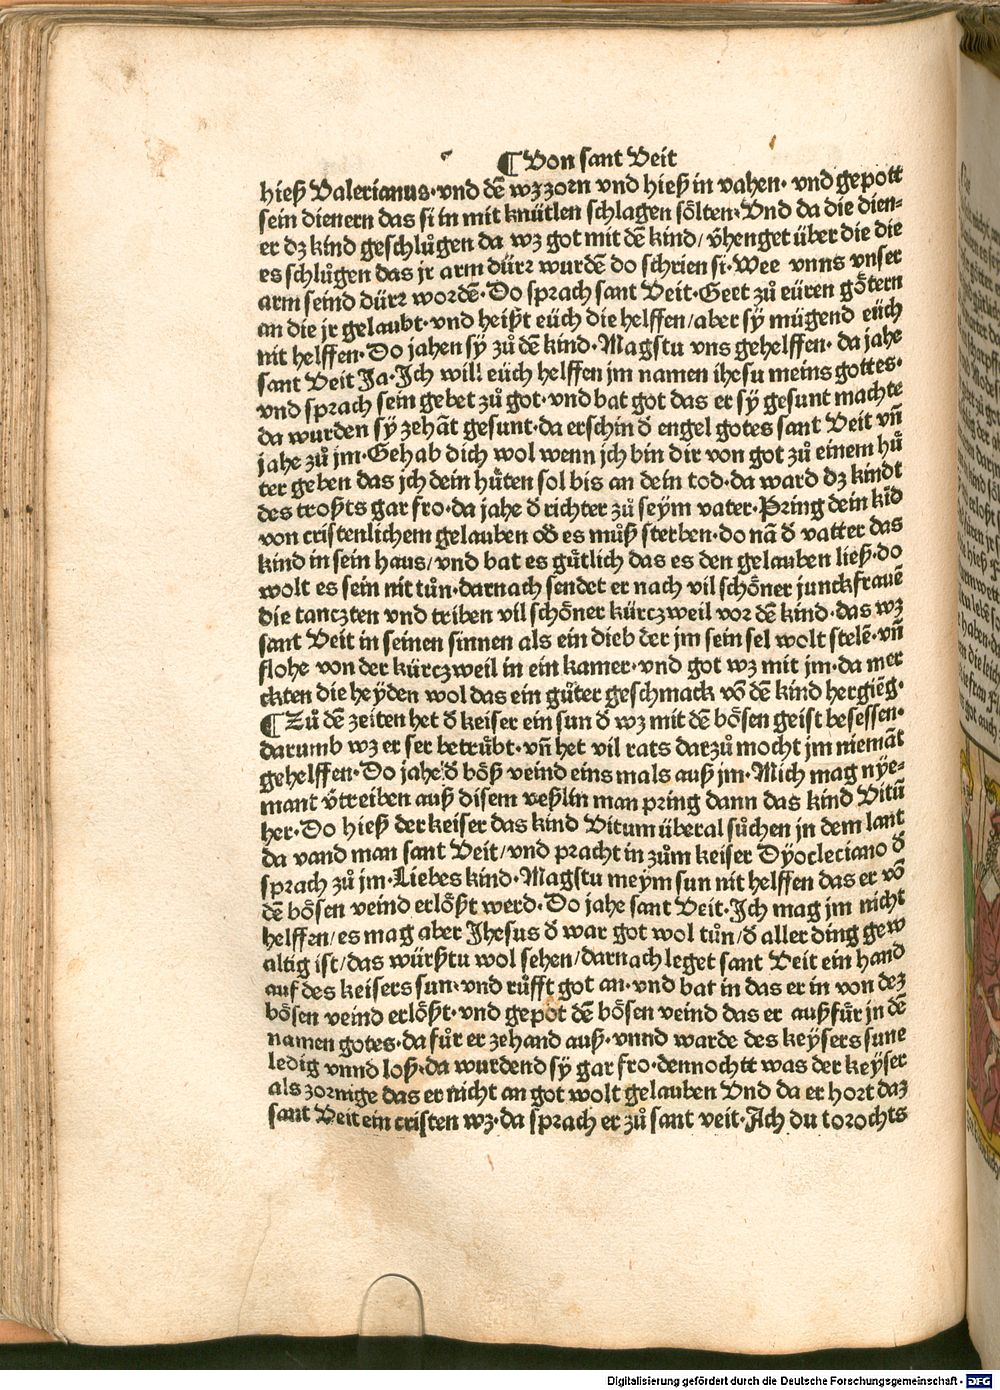 ¶ Von sant Veit
hieß Valerianus·vnd dē wz zorn vnd hieß in vahen· vnd gepott
sein dienern das si in mit knütlen schlagen sölten·Vnd da die dien⸗
er dz kind geschlůgen da wz got mit dē kind/ v̄henget über die die
es schlůgen das jr arm dürr wurdē do schrien si·Wee vnns vnser
arm seind dürr wordē·Do sprach sant Veit·Geet zů eüren göttern
an die jr gelaubt·vnd heißt eüch die helffen/aber sÿ mügend eüch
nit helffen·Do jahen sÿ zů dē kind·Magstu vns gehelffen· da jahe
sant Veit Ja·Ich will eüch helffen jm namen ihesu meins gottes·
vnd sprach sein gebet zů got·vnd bat got das er sÿ gesunt machte
da wurden sÿ zehāt gesunt·da erschin d̄ engel gotes sant Veit vn̄
jahe zů jm·Gehab dich wol wenn jch bin dir von got zů einem hů
ter geben das jch dein hůten sol bis an dein tod·da ward dz kindt
des trosts gar fro·da jahe d̄ richter zů seym vater·Pring dein kīd
von cristenlichem gelauben od̄ es můß sterben·do nā d̄ vatter das
kind in sein haus/vnd bat es gůtlich das es den gelauben ließ·do
wolt es sein nit tůn·darnach sendet er nach vil schöner junckfrauē
die tanczten vnd triben vil schöner kürczweil vor dē kind·das wz
sant Veit in seinen sinnen als ein dieb der jm sein sel wolt stelē·vn̄
flohe von der kürczweil in ein kamer·vnd got wz mit jm·da mer
ckten die heyden wol das ein gůter geschmack vō dē kind hergieḡ·
¶ Zů dē zeiten het d̄ keiser ein sun d̄ wz mit dē bösen geist besessen·
darumb wz er ser betrůbt·vn̄ het vil rats darzů mocht jm niemāt
gehelffen·Do jahe d̄ böß veind eins mals auß jm·Mich mag nÿe⸗
mant v̄treiben auß disem veßlin man pring dann das kind Vitū
her·Do hieß der keiser das kind Vitum überal sůchen jn dem lant
da vand man sant Veit/vnd pracht in zům keiser Dÿocleciano d̄
sprach zů jm·Liebes kind·Magstu meym sun nit helffen das er vō
dē bösen veind erlößt werd·Do jahe sant Veit·Ich mag jm nicht
helffen/es mag aber Jhesus d̄ war got wol tůn/d̄ aller ding gew
altig ist/das würstu wol sehen/darnach leget sant Veit ein hand
auf des keisers sun·vnd růfft got an·vnd bat in das er in von dez
bösen veind erlößt·vnd gepot dē bösen veind das er außfůr jn dē
namen gotes·da fůr er zehand auß·vnnd warde des keÿsers sune
ledig vnnd loß·da wurdend sÿ gar fro·dennochtt was der keÿser
als zornige das er nicht an got wolt gelauben Vnd da er hort daz
sant Veit ein cristen wz·da sprach er zů sant veit·Ach du torochts
Digitalisierung gefördert durch die Deutsche Forschungsgemeinschaft - DFG